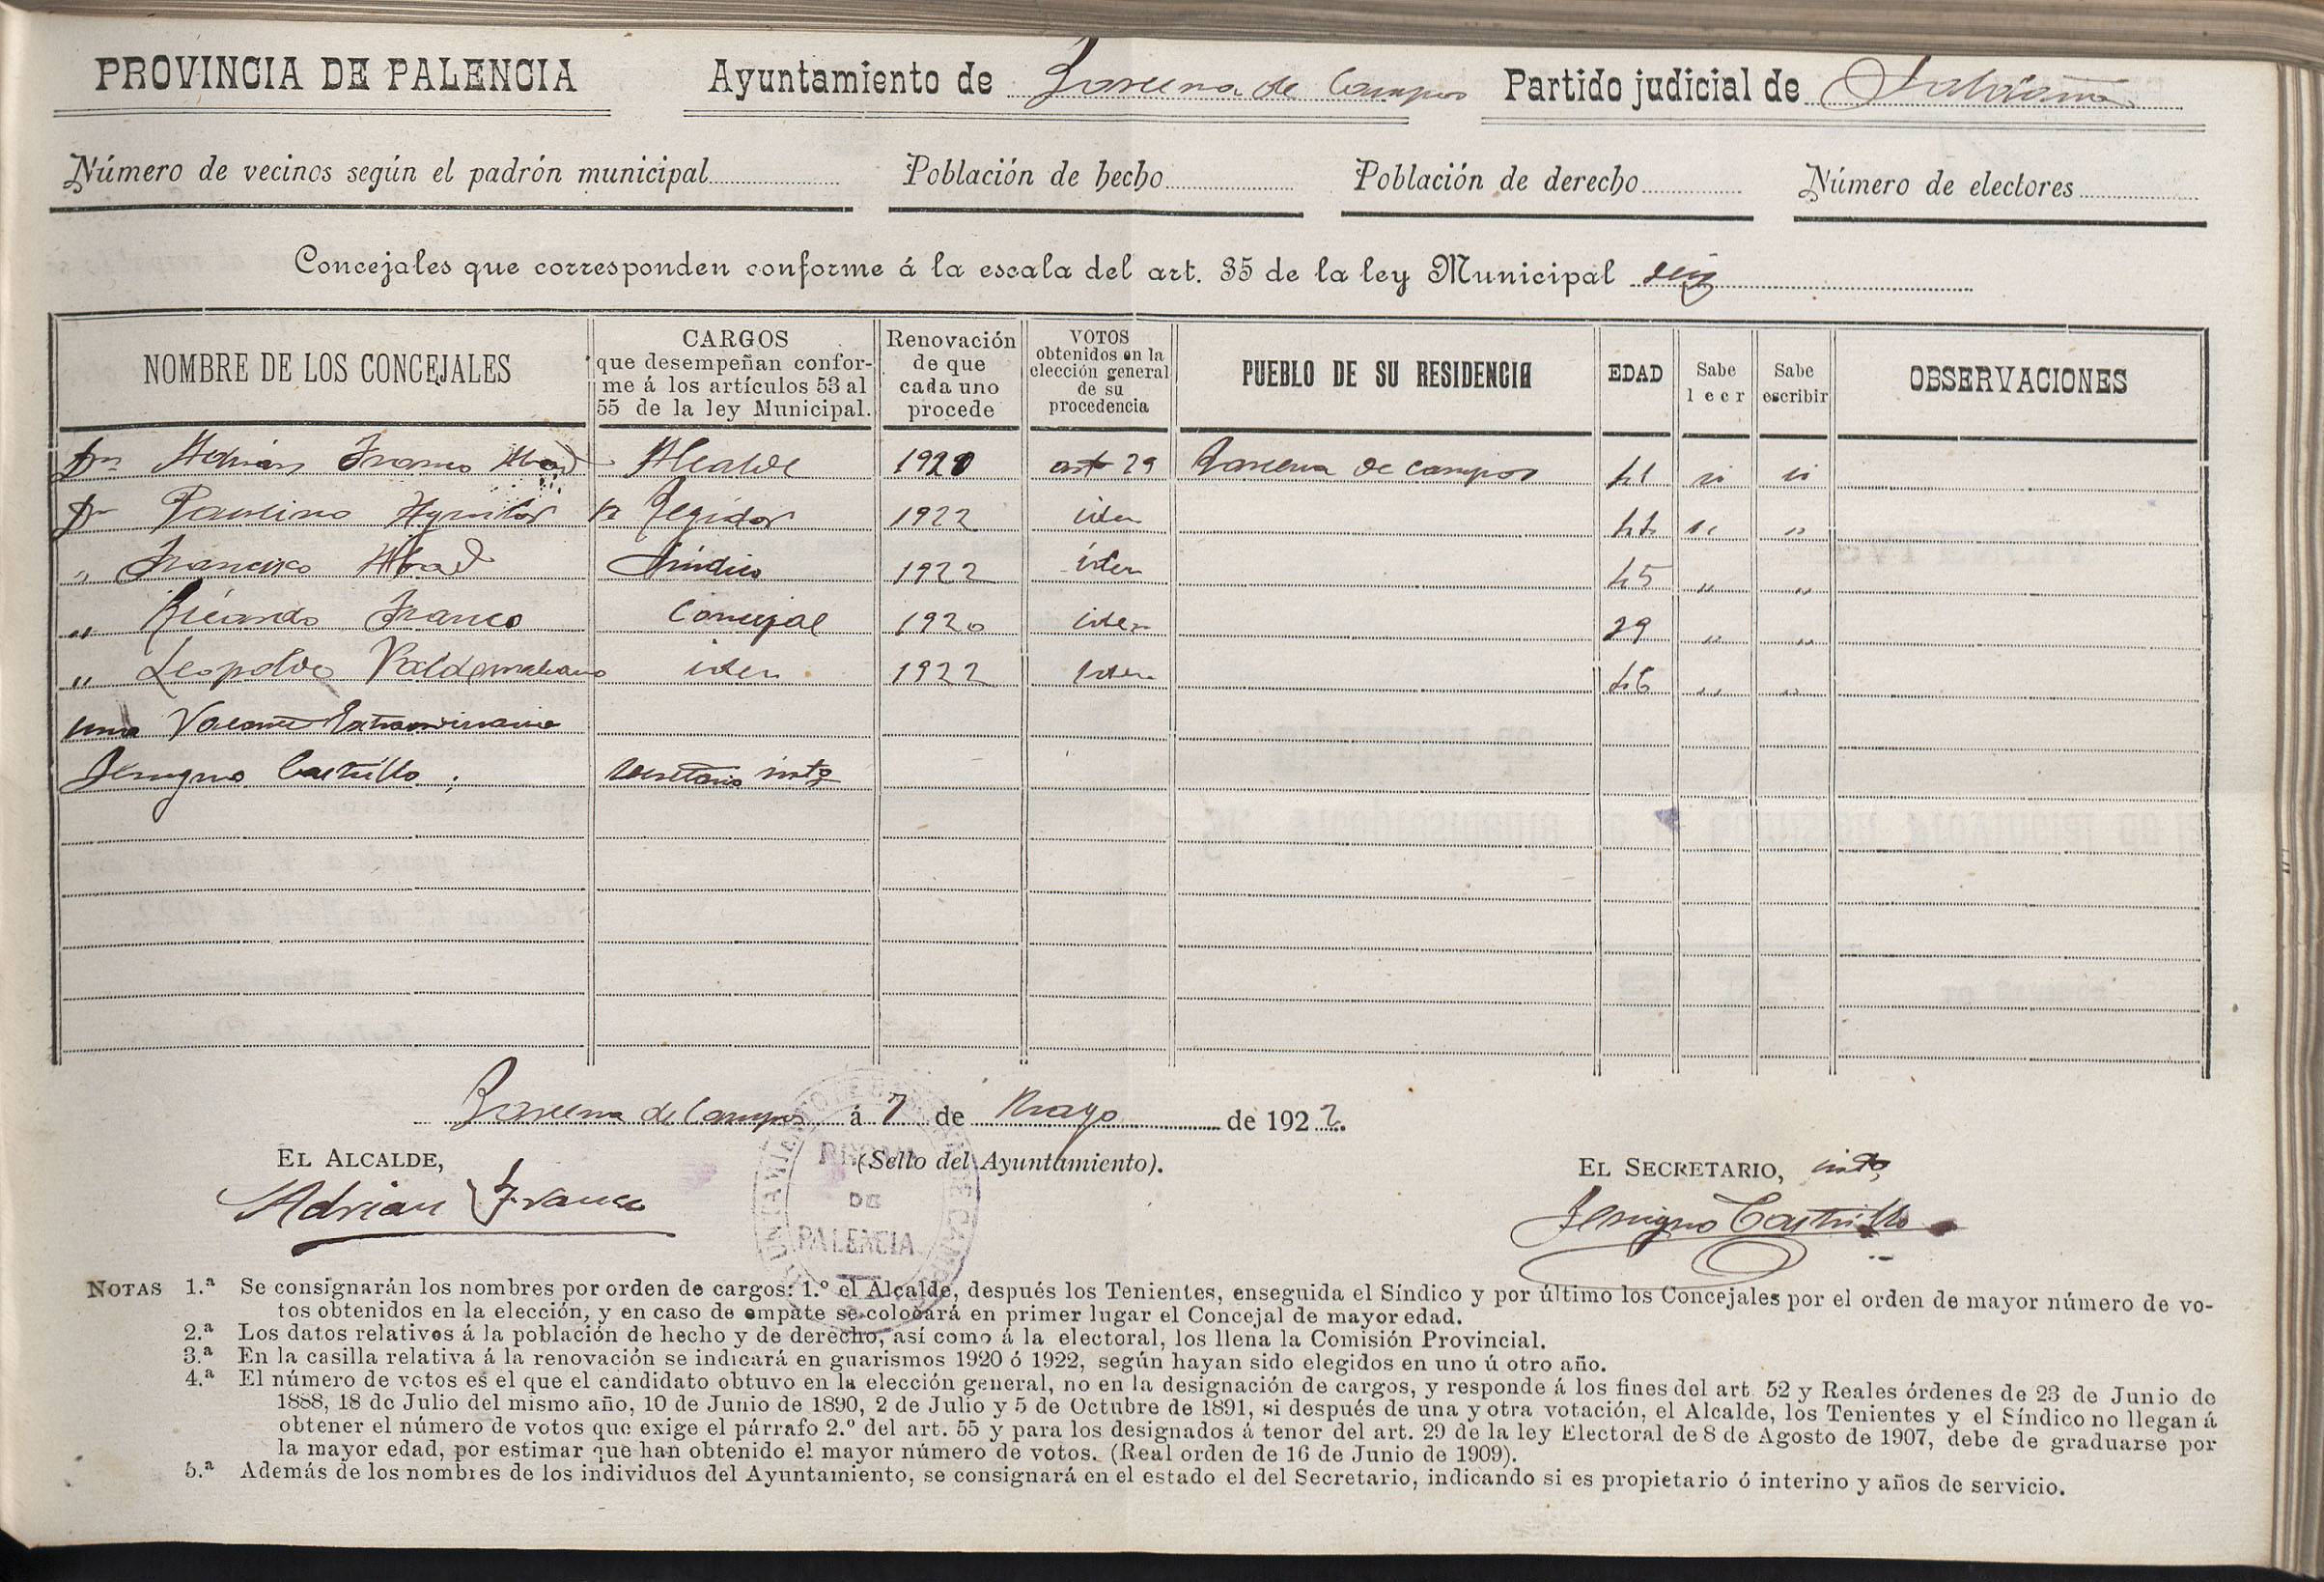 PROVINCIA DE PALENCIA Ayuntamiento de Barcena de Campos Partido judicial de Saldaña
Número de vecinos según el padrón municipal Población de hecho Población de derecho Número de electores
Concejales que corresponden conforme á la escala del art. 35 de la ley Municipal seis
NOMBRE DE LOS CONCEJALES
CARGOS
que desempeñan confor-
me á los artículos 53 al
55 de la ley Municipal.
Renovación
de que
cada uno
procede
VOTOS
obtenidos en la
elección general
de su
procedencia
PUEBLO DE SU RESIDENCIA
EDAD
Sabe
leer
Sabe
escribir
OBSERVACIONES
Dn Adrian Franco Abad Alcalde 1920 art 29 Barcena de campos 41 si si
Dn Paulino Aguilar Regidor 1922 iden 44 " "
" Francisco Abad Sindico 1922 iden 45 " "
" Ricardo Franco Concejal 1920 iden 29 " "
" Leopoldo iden 1922 Iden 46 " "
una Vacante Extraordinaria
Benigno Castrillo secretario intº
Barcena de Campos á 7 de Mayo de 1922.
EL ALCALDE, (Sello del Ayuntamiento). EL SECRETARIO, intº
Adrian Franco Benigno Castrillo
DE
PALENCIA
NOTAS 1.ª Se consignarán los nombres por orden de cargos: 1.º el Alcalde, después los Tenientes, enseguida el Síndico y por último los Concejales por el orden de mayor número de vo-
tos obtenidos en la elección, y en caso de empate se colocará en primer lugar el Concejal de mayor edad.
2.ª Los datos relativos á la población de hecho y de derecho, así como á la electoral, los llena la Comisión Provincial.
3.ª En la casilla relativa á la renovación se indicará en guarismos 1920 ó 1922, según hayan sido elegidos en uno ú otro año.
4.ª El número de votos es el que el candidato obtuvo en la elección general, no en la designación de cargos, y responde á los fines del art. 52 y Reales órdenes de 23 de Junio de
1888, 18 de Julio del mismo año, 10 de Junio de 1890, 2 de Julio y 5 de Octubre de 1891, si después de una y otra votación, el Alcalde, los Tenientes y el Síndico no llegan á
obtener el número de votos que exige el párrafo 2.º del art. 55 y para los designados á tenor del art. 29 de la ley Electoral de 8 de Agosto de 1907, debe de graduarse por
la mayor edad, por estimar que han obtenido el mayor número de votos. (Real orden de 16 de Junio de 1909).
5.ª Además de los nombres de los individuos del Ayuntamiento, se consignará en el estado el del Secretario, indicando si es propietario ó interino y años de servicio.